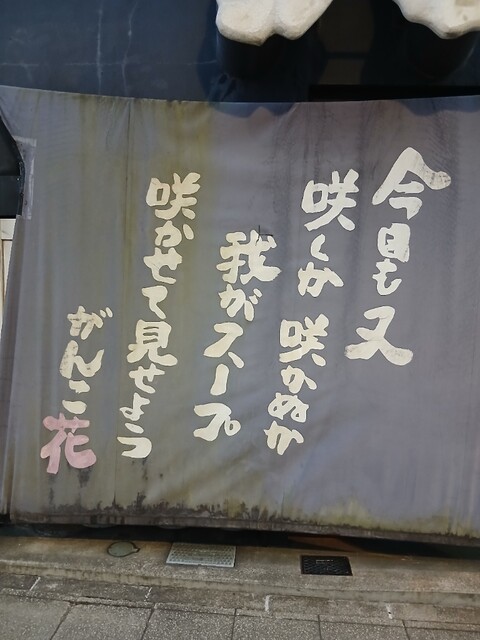 今日も又
咲くか咲かぬか
我がスープ
咲かせて見せよう
がんこ花